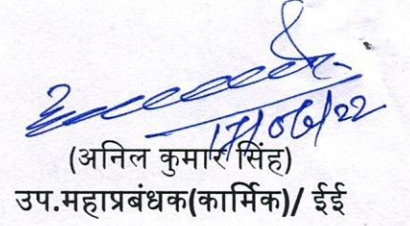 17/06/22
(अनिल कुमार सिंह)
उप.महाप्रबंधक(कार्मिक)/ ईई